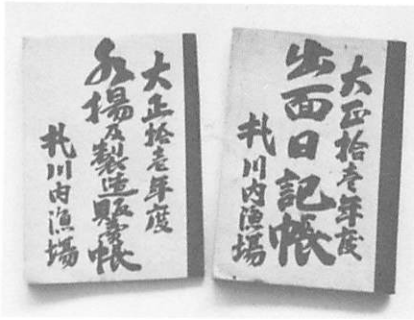 大正拾壱年度
出面日記帳
札川内漁場
大正拾壱年度
水揚及製造販賣帳
札川内漁場